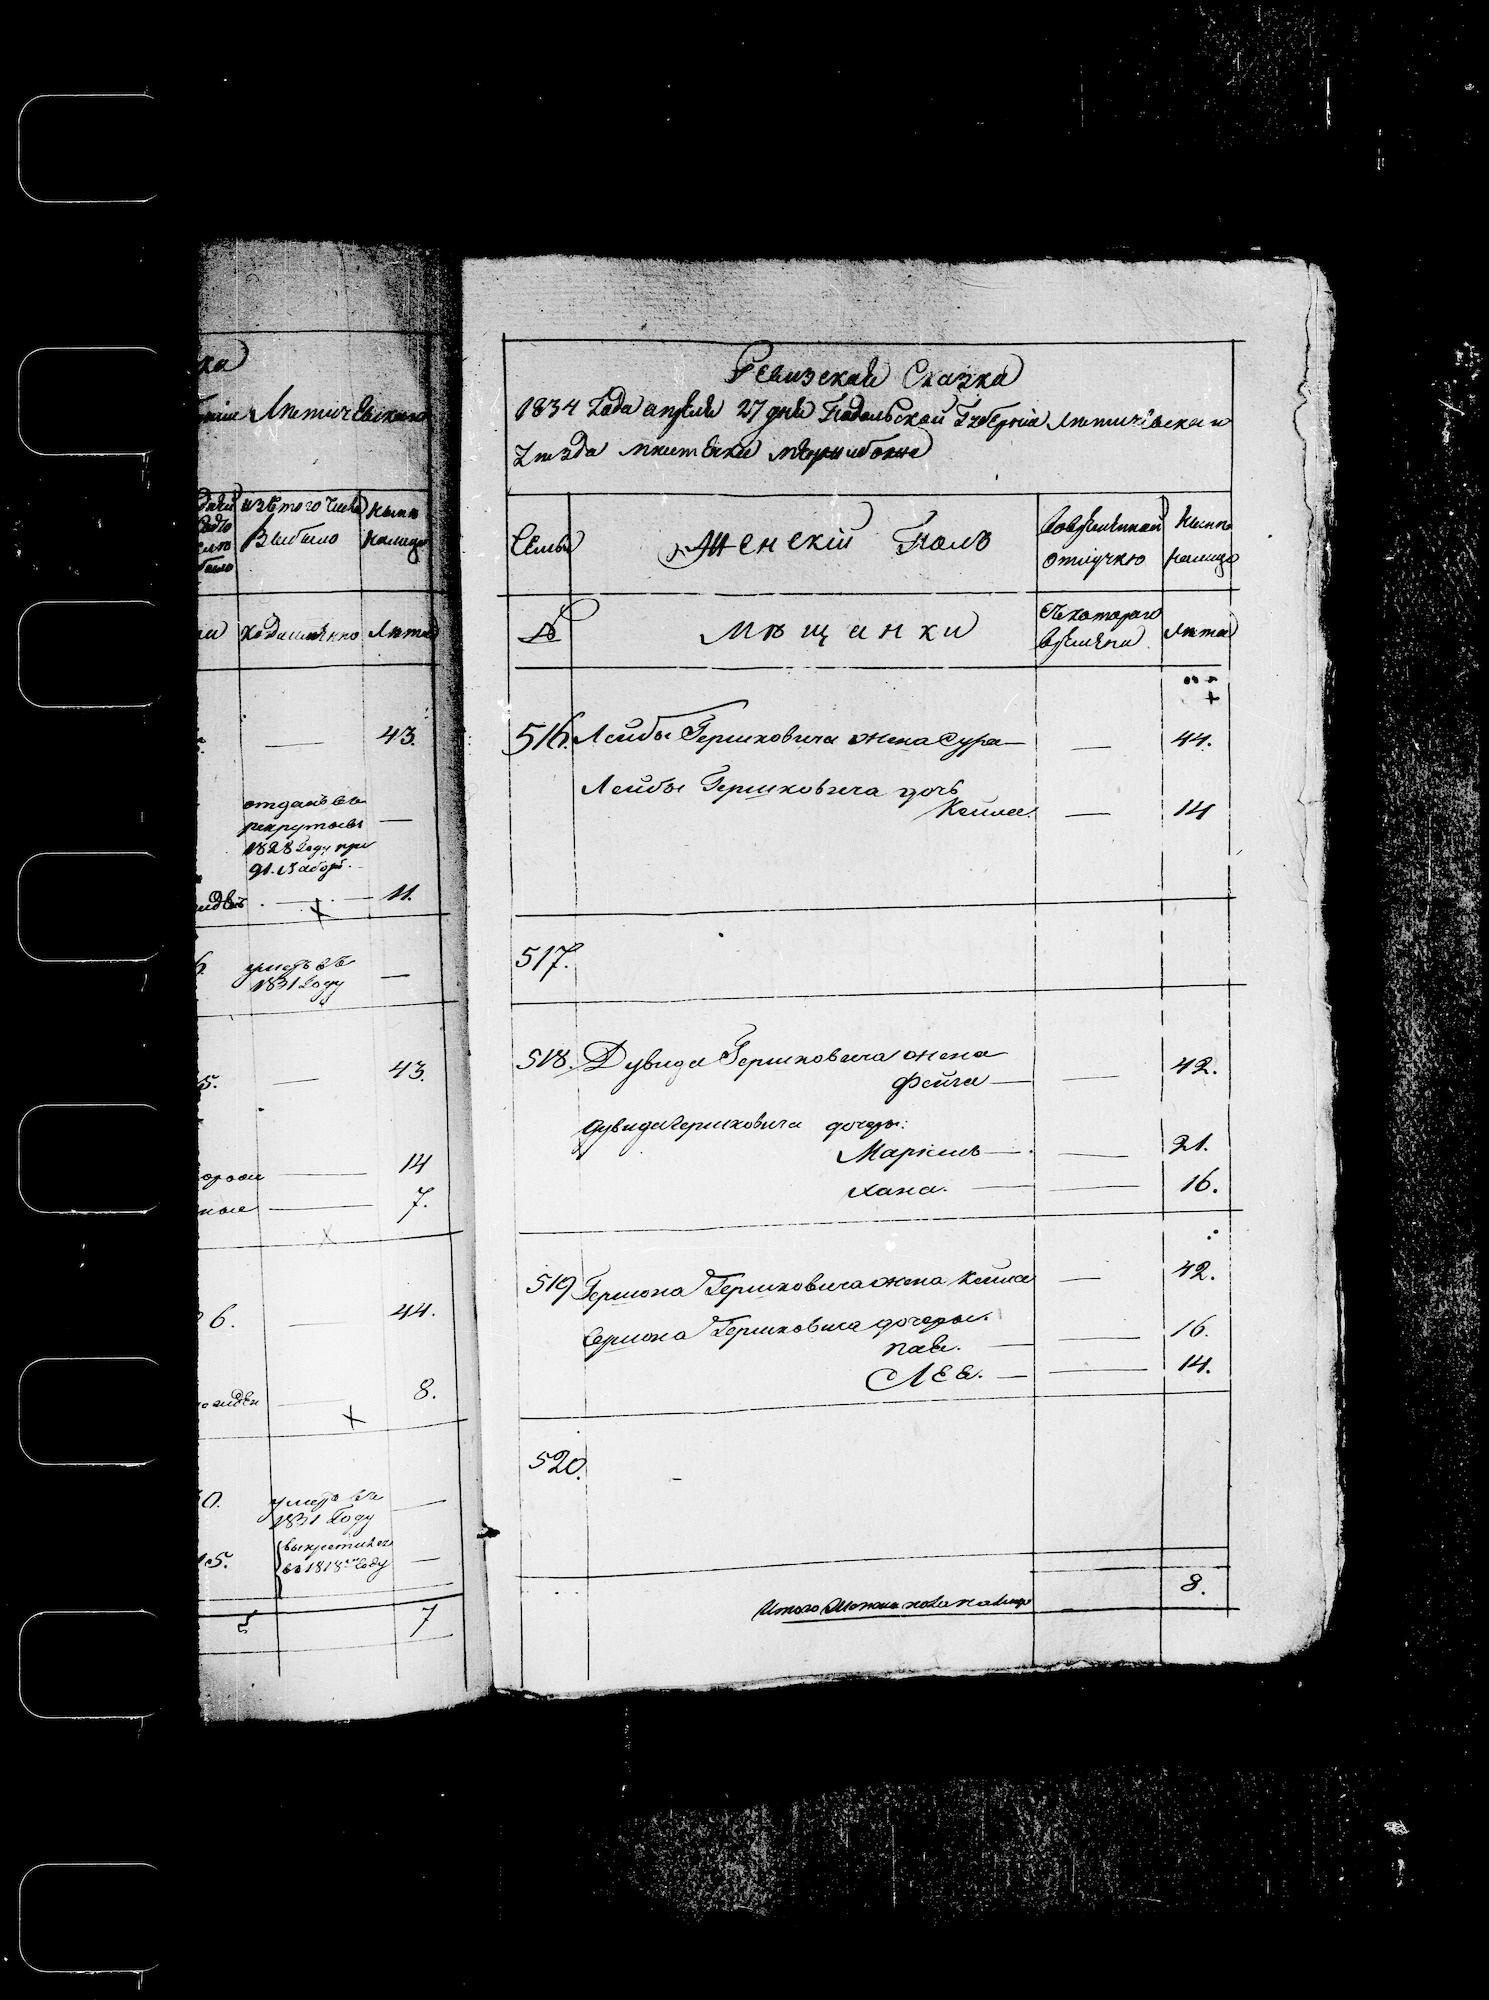 ка
Лѣтичевскаго
изъ того числа
выбыло
ныне
налицо
когда именно
лѣта
43.
отданъ въ
рекруты въ
1828 году при
91. наборѣ
11.
умеръ въ
1831 году
43.
14
7.
6.
44.
8.
умеръ въ
1831 году
15.
выкрестился
въ 1818 году
7
Ревизская Сказка
1834 года апреля 27 дня Подольской Губерніи Лѣтичевскаго
уезда местечка Меджибожа
Семьи
Женскій Полъ
Во временной
отлучкѣ
Ныне
налицо
№
Мѣщанки
Съ котораго
времени
Лѣта
516. Лейбы Гершковича жена Сура — — 44.
Лейбы Гершковича дочь
Кейла — 14
517.
518. Дувида Гершковича жена
Фейга — — 42.
Дувида Гершковича дочеры:
Маркель — — 21.
Хана. — — 16.
519 Гершона Гершковича жена Кейла — 42.
Гершона Гершковича дочеры.
— — 16.
Лея. — — 14.
520.
Итого женска пола налицо 8.